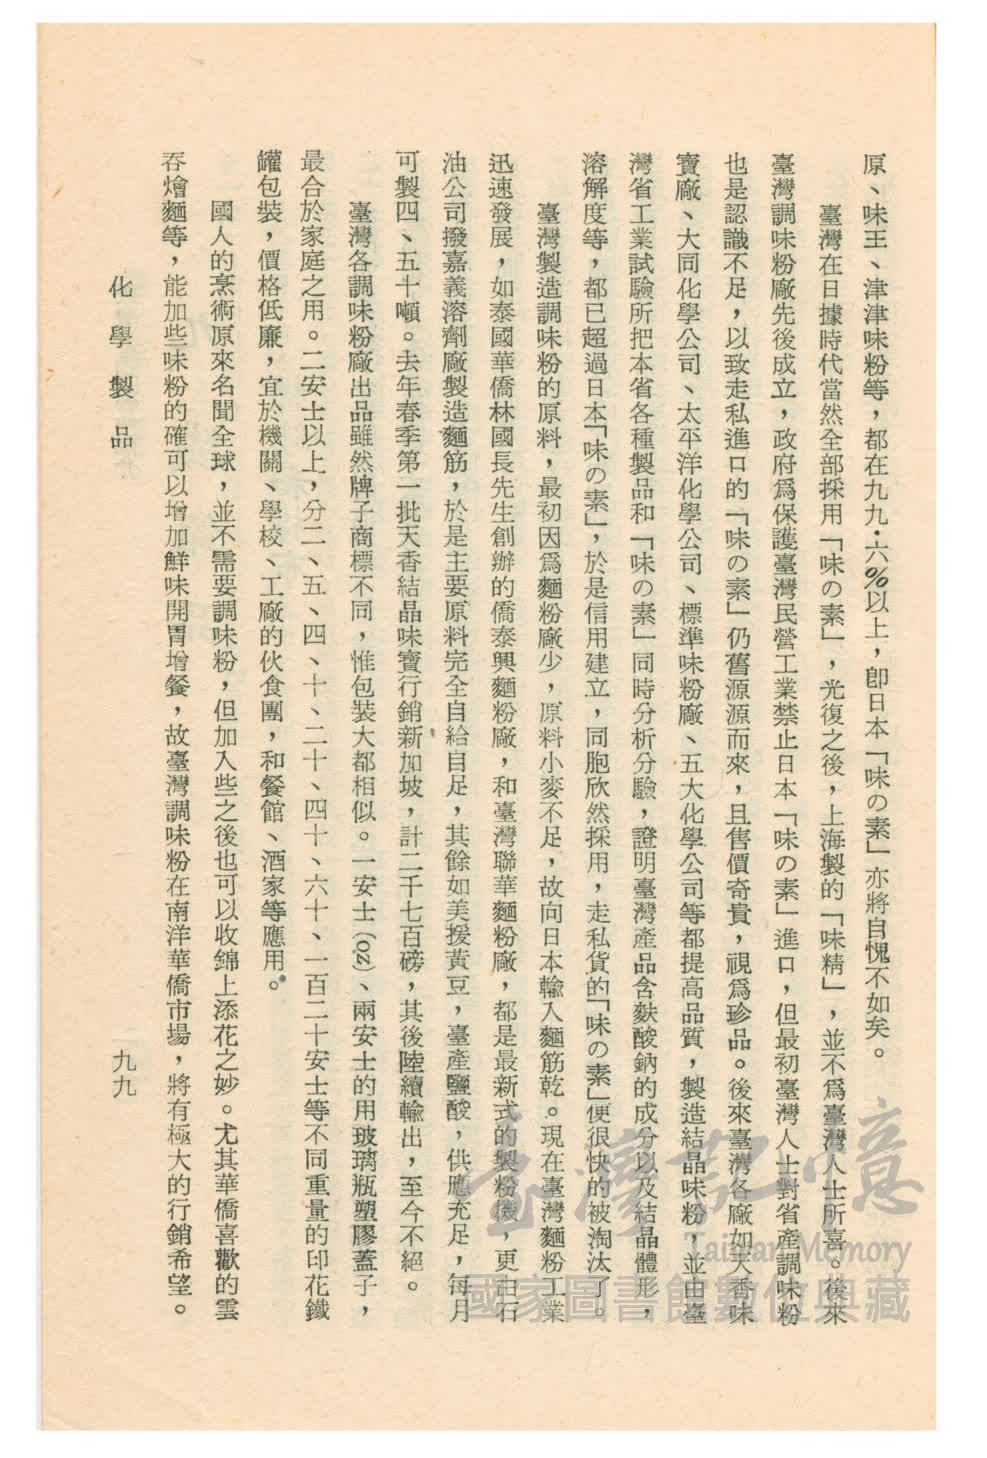 原、味王、津津味粉等，都在九九·六%以上，卽日本「味の素」亦將自愧不如矣。
臺灣在日據時代當然全部採用「味の素」，光復之後，上海製的「味精」，並不爲臺灣人士所喜。後來
臺灣調味粉廠先後成立，政府爲保護臺灣民營工業禁止日本「味の素」進口，但最初臺灣人士對省產調味粉
也是認識不足，以致走私進口的「味の素」仍舊源源而來，且售價奇貴，視爲珍品。後來臺灣各廠如天香味
寶廠、大同化學公司、太平洋化學公司、標準味粉廠、五大化學公司等都提高品質，製造結晶味粉，並由臺
灣省工業試驗所把本省各種製品和「味の素」同時分析分驗，證明臺灣產品含麩酸鈉的成分以及結晶體形，
溶解度等，都已超過日本「味の素」，於是信用建立，同胞欣然採用，走私貨的「味の素」便很快的被淘汰了。
臺灣製造調味粉的原料，最初因爲麵粉廠少，原料小麥不足，故向日本輸入麵筋乾。現在臺灣麵粉工業
迅速發展，如泰國華僑林國長先生創辦的僑泰興麵粉廠，和臺灣聯華麵粉廠，都是最新式的製粉機，更由石
油公司撥嘉義溶劑廠製造麵筋，於是主要原料完全自給自足，其餘如美援黃豆，臺產鹽酸，供應充足，每月
可製四、五十噸。去年春季第一批天香結晶味寶行銷新加坡，計二千七百磅，其後陸續輸出，至今不絕。
臺灣各調味粉廠出品雖然牌子商標不同，惟包裝大都相似。一安士(oz)、兩安士的用玻璃瓶塑膠蓋子，
最合於家庭之用。二安士以上，分二、五、四、十、二十、四十、六十、一百二十安士等不同重量的印花鐵
罐包裝，價格低廉，宜於機關、學校、工廠的伙食團，和餐館、酒家等應用。
國人的烹術原來名聞全球，並不需要調味粉，但加入些之後也可以收錦上添花之妙。尤其華僑喜歡的雲
吞燴麵等，能加些味粉的確可以增加鮮味開胃增餐，故臺灣調味粉在南洋華僑市場，將有極大的行銷希望。
化學製品
九九
臺灣記憶
Taiwan Memory
國家圖書館數位典藏